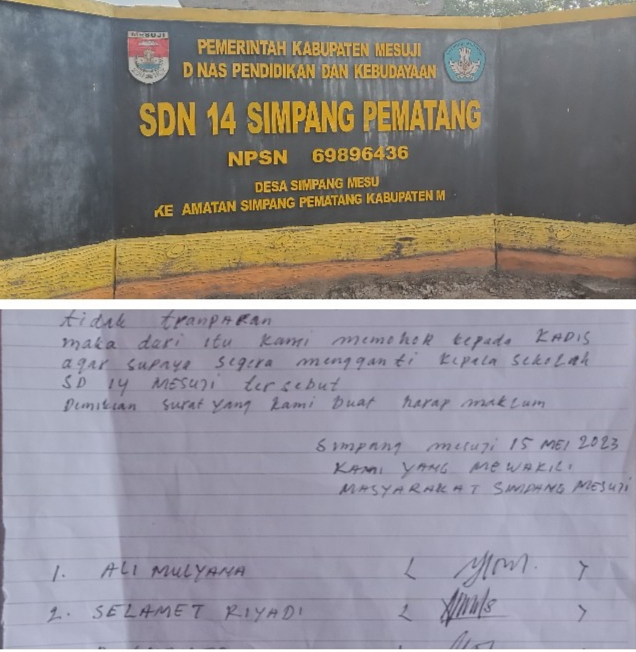 MESUJI
PEMERINTAH KABUPATEN MESUJI
D NAS PENDIDIKAN DAN KEBUDAYAAN
SDN 14 SIMPANG PEMATANG
NPSN 69896436
DESA SIMPANG MESU
KE AMATAN SIMPANG PEMATANG KABUPATEN M
tidak tranparan
maka dari itu kami memohon kepada KADIS
agar supaya segera mengganti kepala sekolah
SD 14 MESUJI tersebut
Demikian surat yang kami buat harap maklum
Simpang mesuji 15 MEI 2023
KAMI YANG MEWAKILI
MASYARAKAT SIMPANG MESUJI
1. ALI MULYANA
2. SELAMET RIYADI